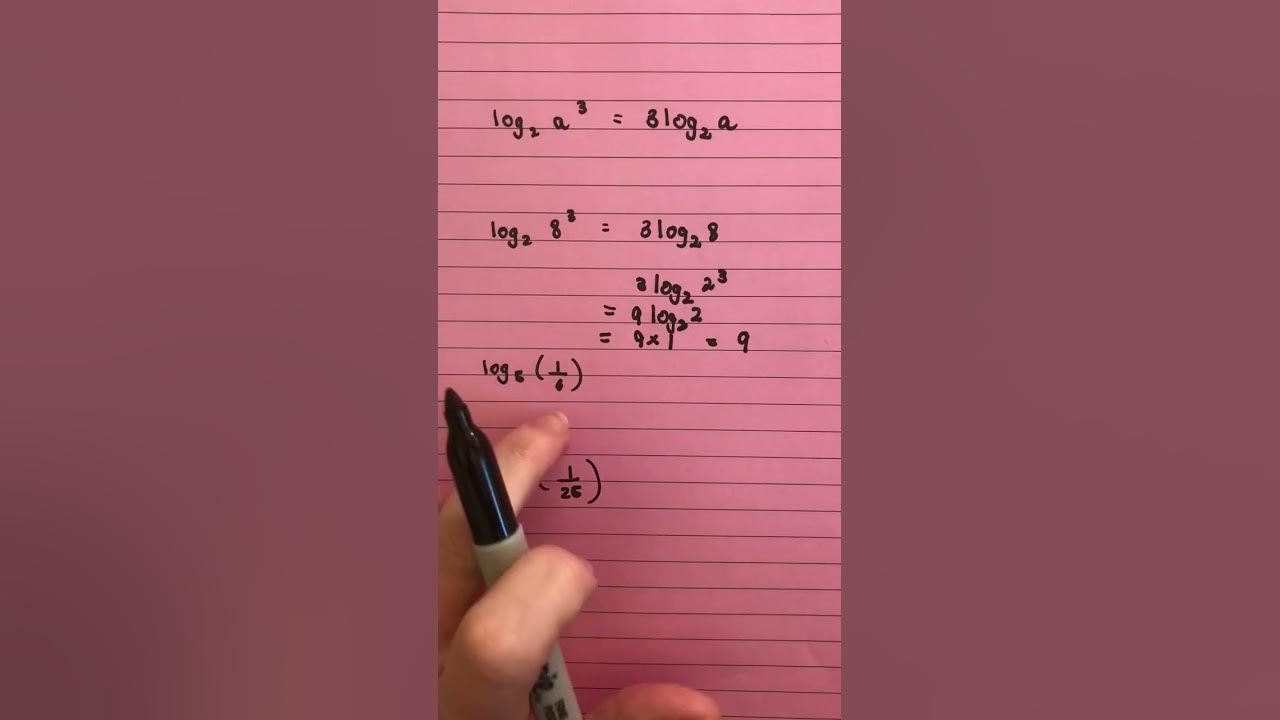 log₂ a³ = 3log₂ a
log₂ 8³ = 3log₂ 8
3log₂ 2³
= 9log₂ 2
= 9×1 = 9
log₅ (1/5)
(1/25)